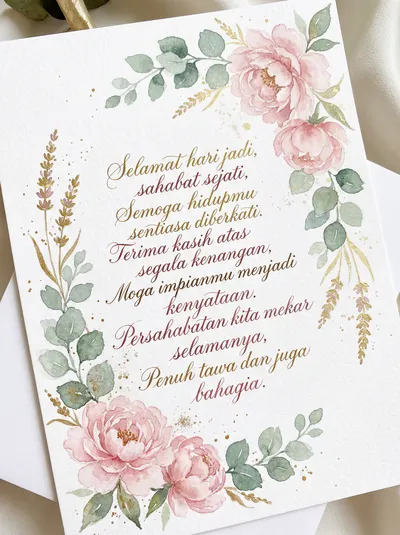 Selamat hari jadi,
sahabat sejati,
Semoga hidupmu
sentiasa diberkati.
Terima kasih atas
segala kenangan,
Moga impianmu menjadi
kenyataan.
Persahabatan kita mekar
selamanya,
Penuh tawa dan juga
bahagia.